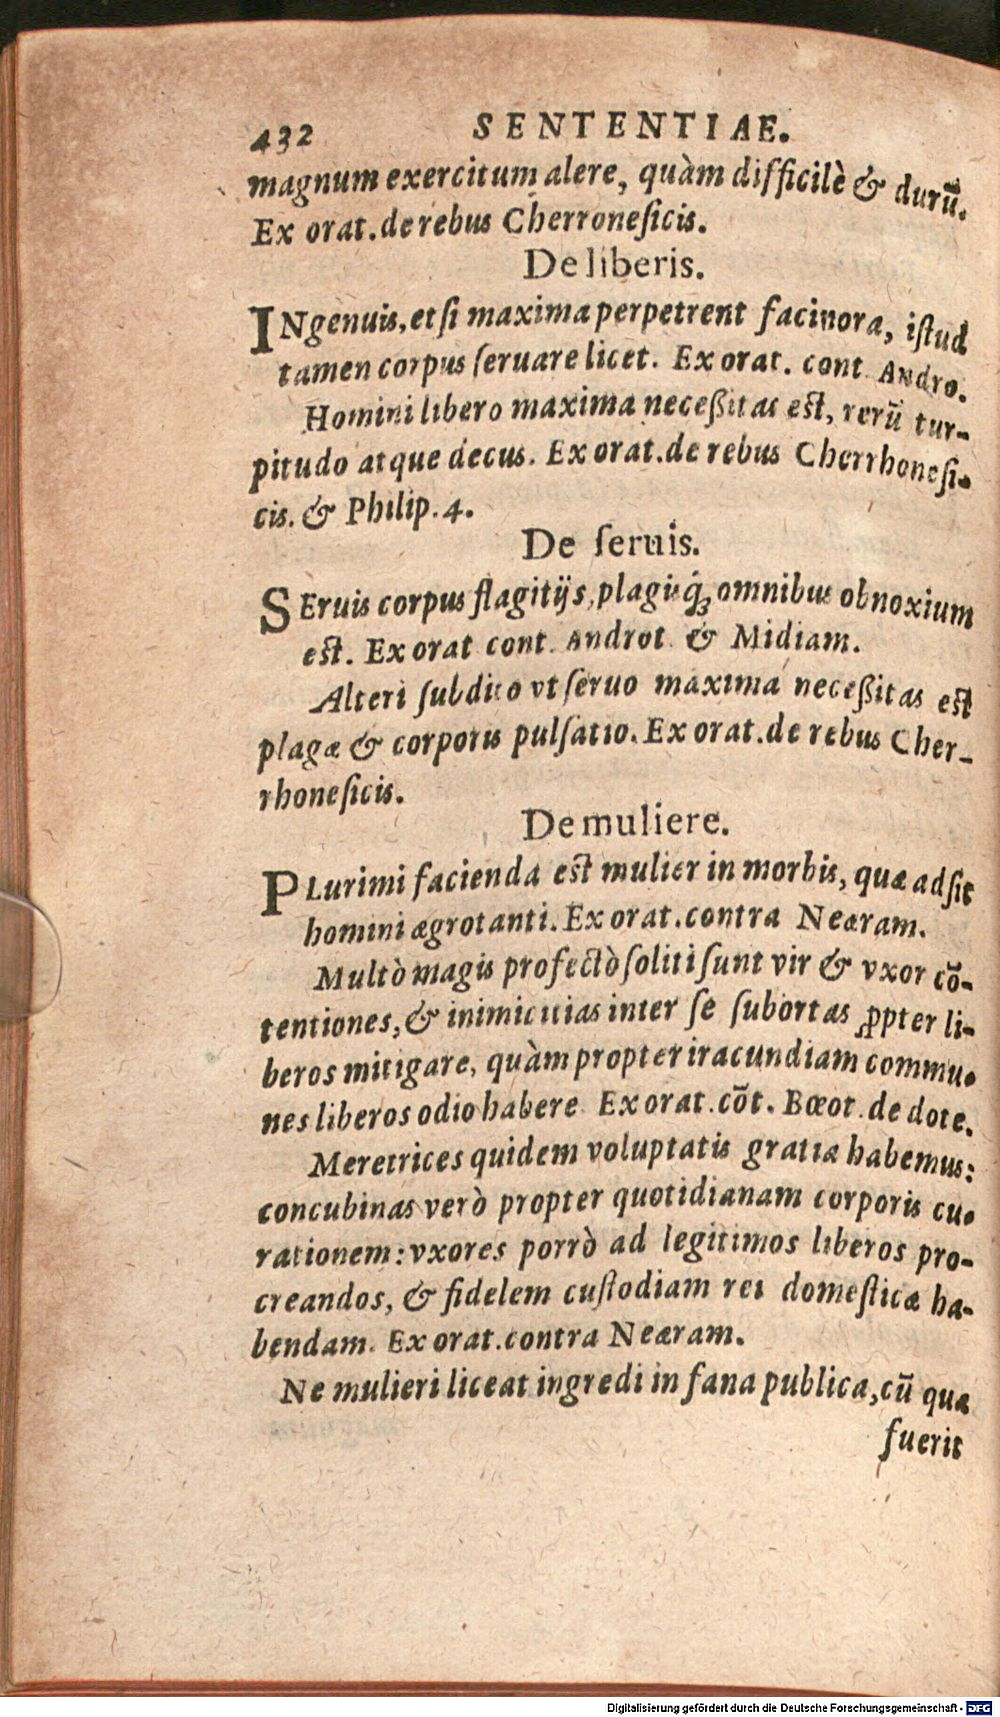 432 SENTENTIAE.
magnum exercitum alere, quàm difficilè & durũ.
Ex orat. de rebus Cherronesicis.
De liberis.
INgenuis, et si maxima perpetrent facinora, istud
tamen corpus seruare licet. Ex orat. cont. Andro.
Homini libero maxima neceßitas est, rerũ tur-
pitudo atque decus. Ex orat. de rebus Cherrhonesi-
cis. & Philip. 4.
De seruis.
SEruis corpus flagitijs, plagisq́; omnibus obnoxium
est. Ex orat cont. Androt. & Midiam.
Alteri subdito vt seruo maxima neceßitas est
plagæ & corporis pulsatio. Ex orat. de rebus Cher-
rhonesicis.
De muliere.
PLurimi facienda est mulier in morbis, quæ adsit
homini ægrotanti. Ex orat. contra Neæram.
Multò magis profectò soliti sunt vir & vxor cõ-
tentiones, & inimicitias inter se subortas ꝓpter li-
beros mitigare, quàm propter iracundiam commu-
nes liberos odio habere. Ex orat. cõt. Bœot. de dote.
Meretrices quidem voluptatis gratia habemus:
concubinas verò propter quotidianam corporis cu-
rationem: vxores porrò ad legitimos liberos pro-
creandos, & fidelem custodiam rei domesticæ ha-
bendam. Ex orat. contra Neæram.
Ne mulieri liceat ingredi in fana publica, cũ qua
fuerit
Digitalisierung gefördert durch die Deutsche Forschungsgemeinschaft - DFG